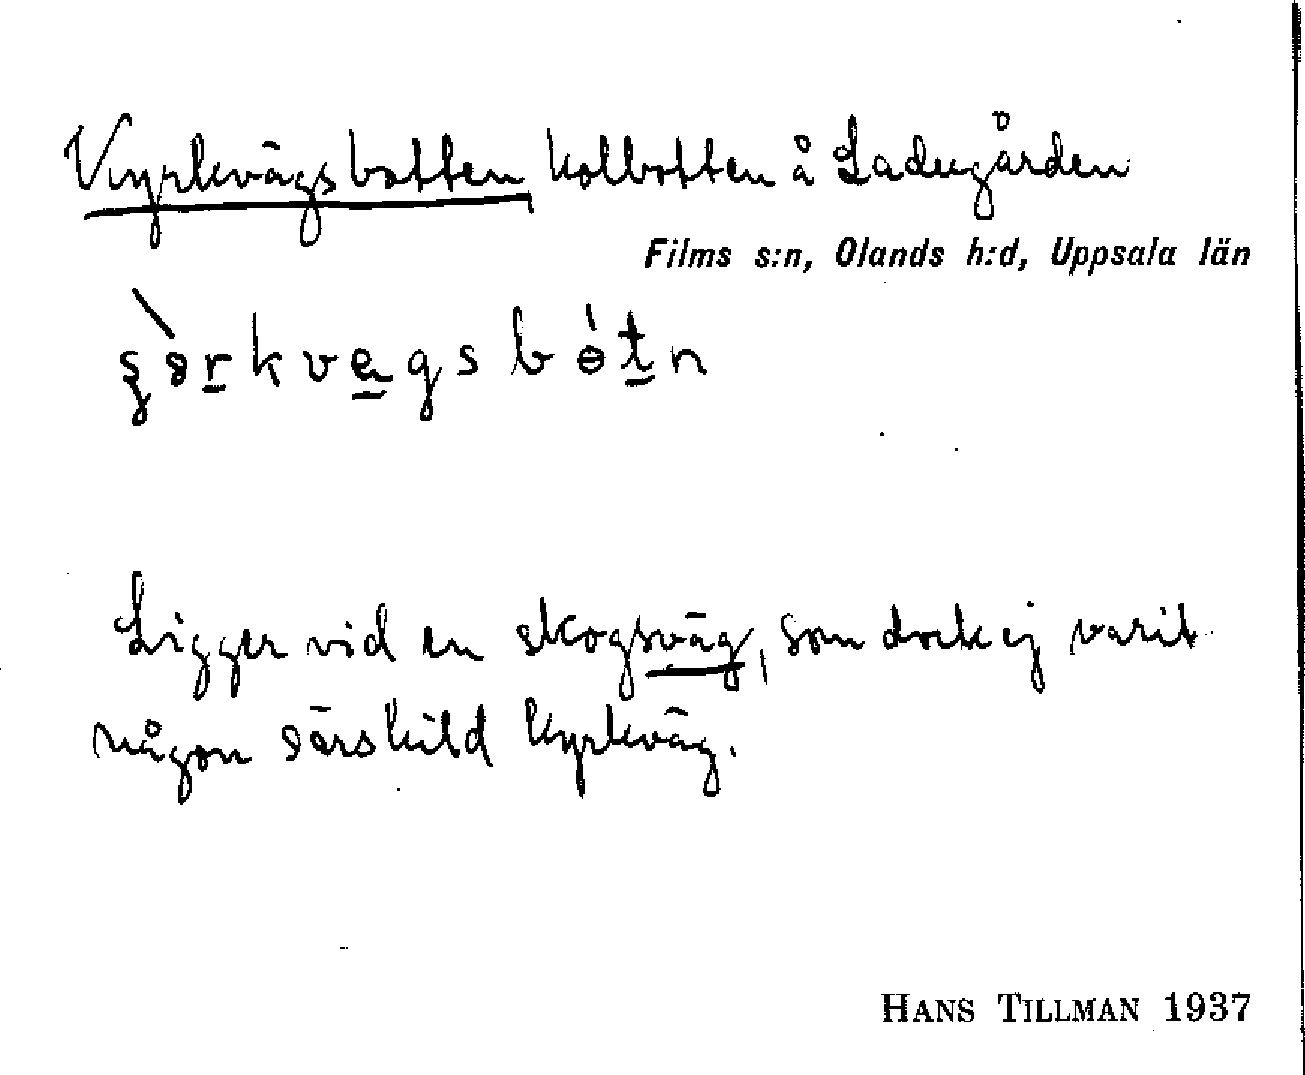 Kyrkvägsbotten kolbotten å Ladugården
Films s:n, Olands h:d, Uppsala län
Ligger vid en skogsväg, som dock ej varit
någon särskild kyrkväg.
HANS TILLMAN 1937